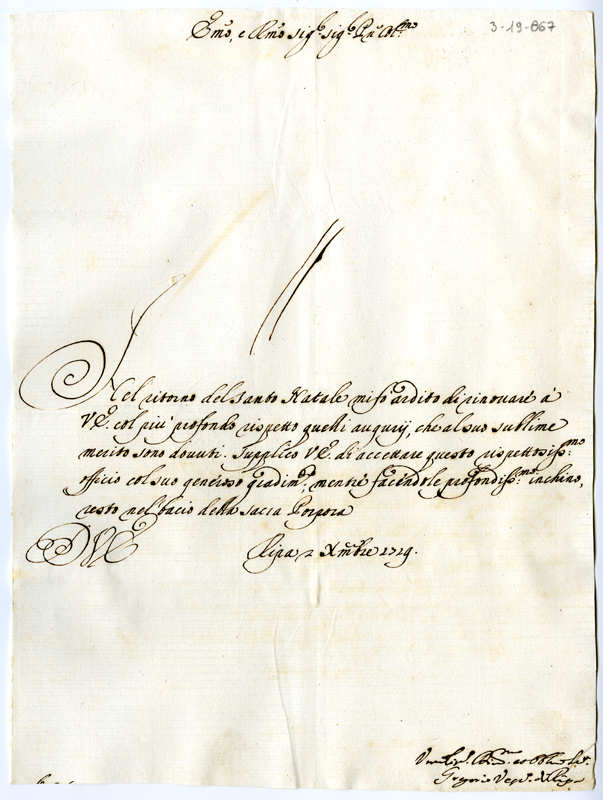 Emo, e Rmo Sigr. Sigr. Pne Colmo
3-19-867
Nel ritorno del Santo Natale mi fò ardito di rinovare à
V.E. col più profondo rispetto quelli augurij, che al suo sublime
merito sono dovuti. Supplico V.E. di accettare questo rispettosiss:mo
officio col suo generoso gradim.to, mentre facendole profondiss:mo inchino,
resto nel bacio della Sacra Porpora
D V E
Ripa 2 Xmbre 1729.
Gregorio Vesc. di Ripa